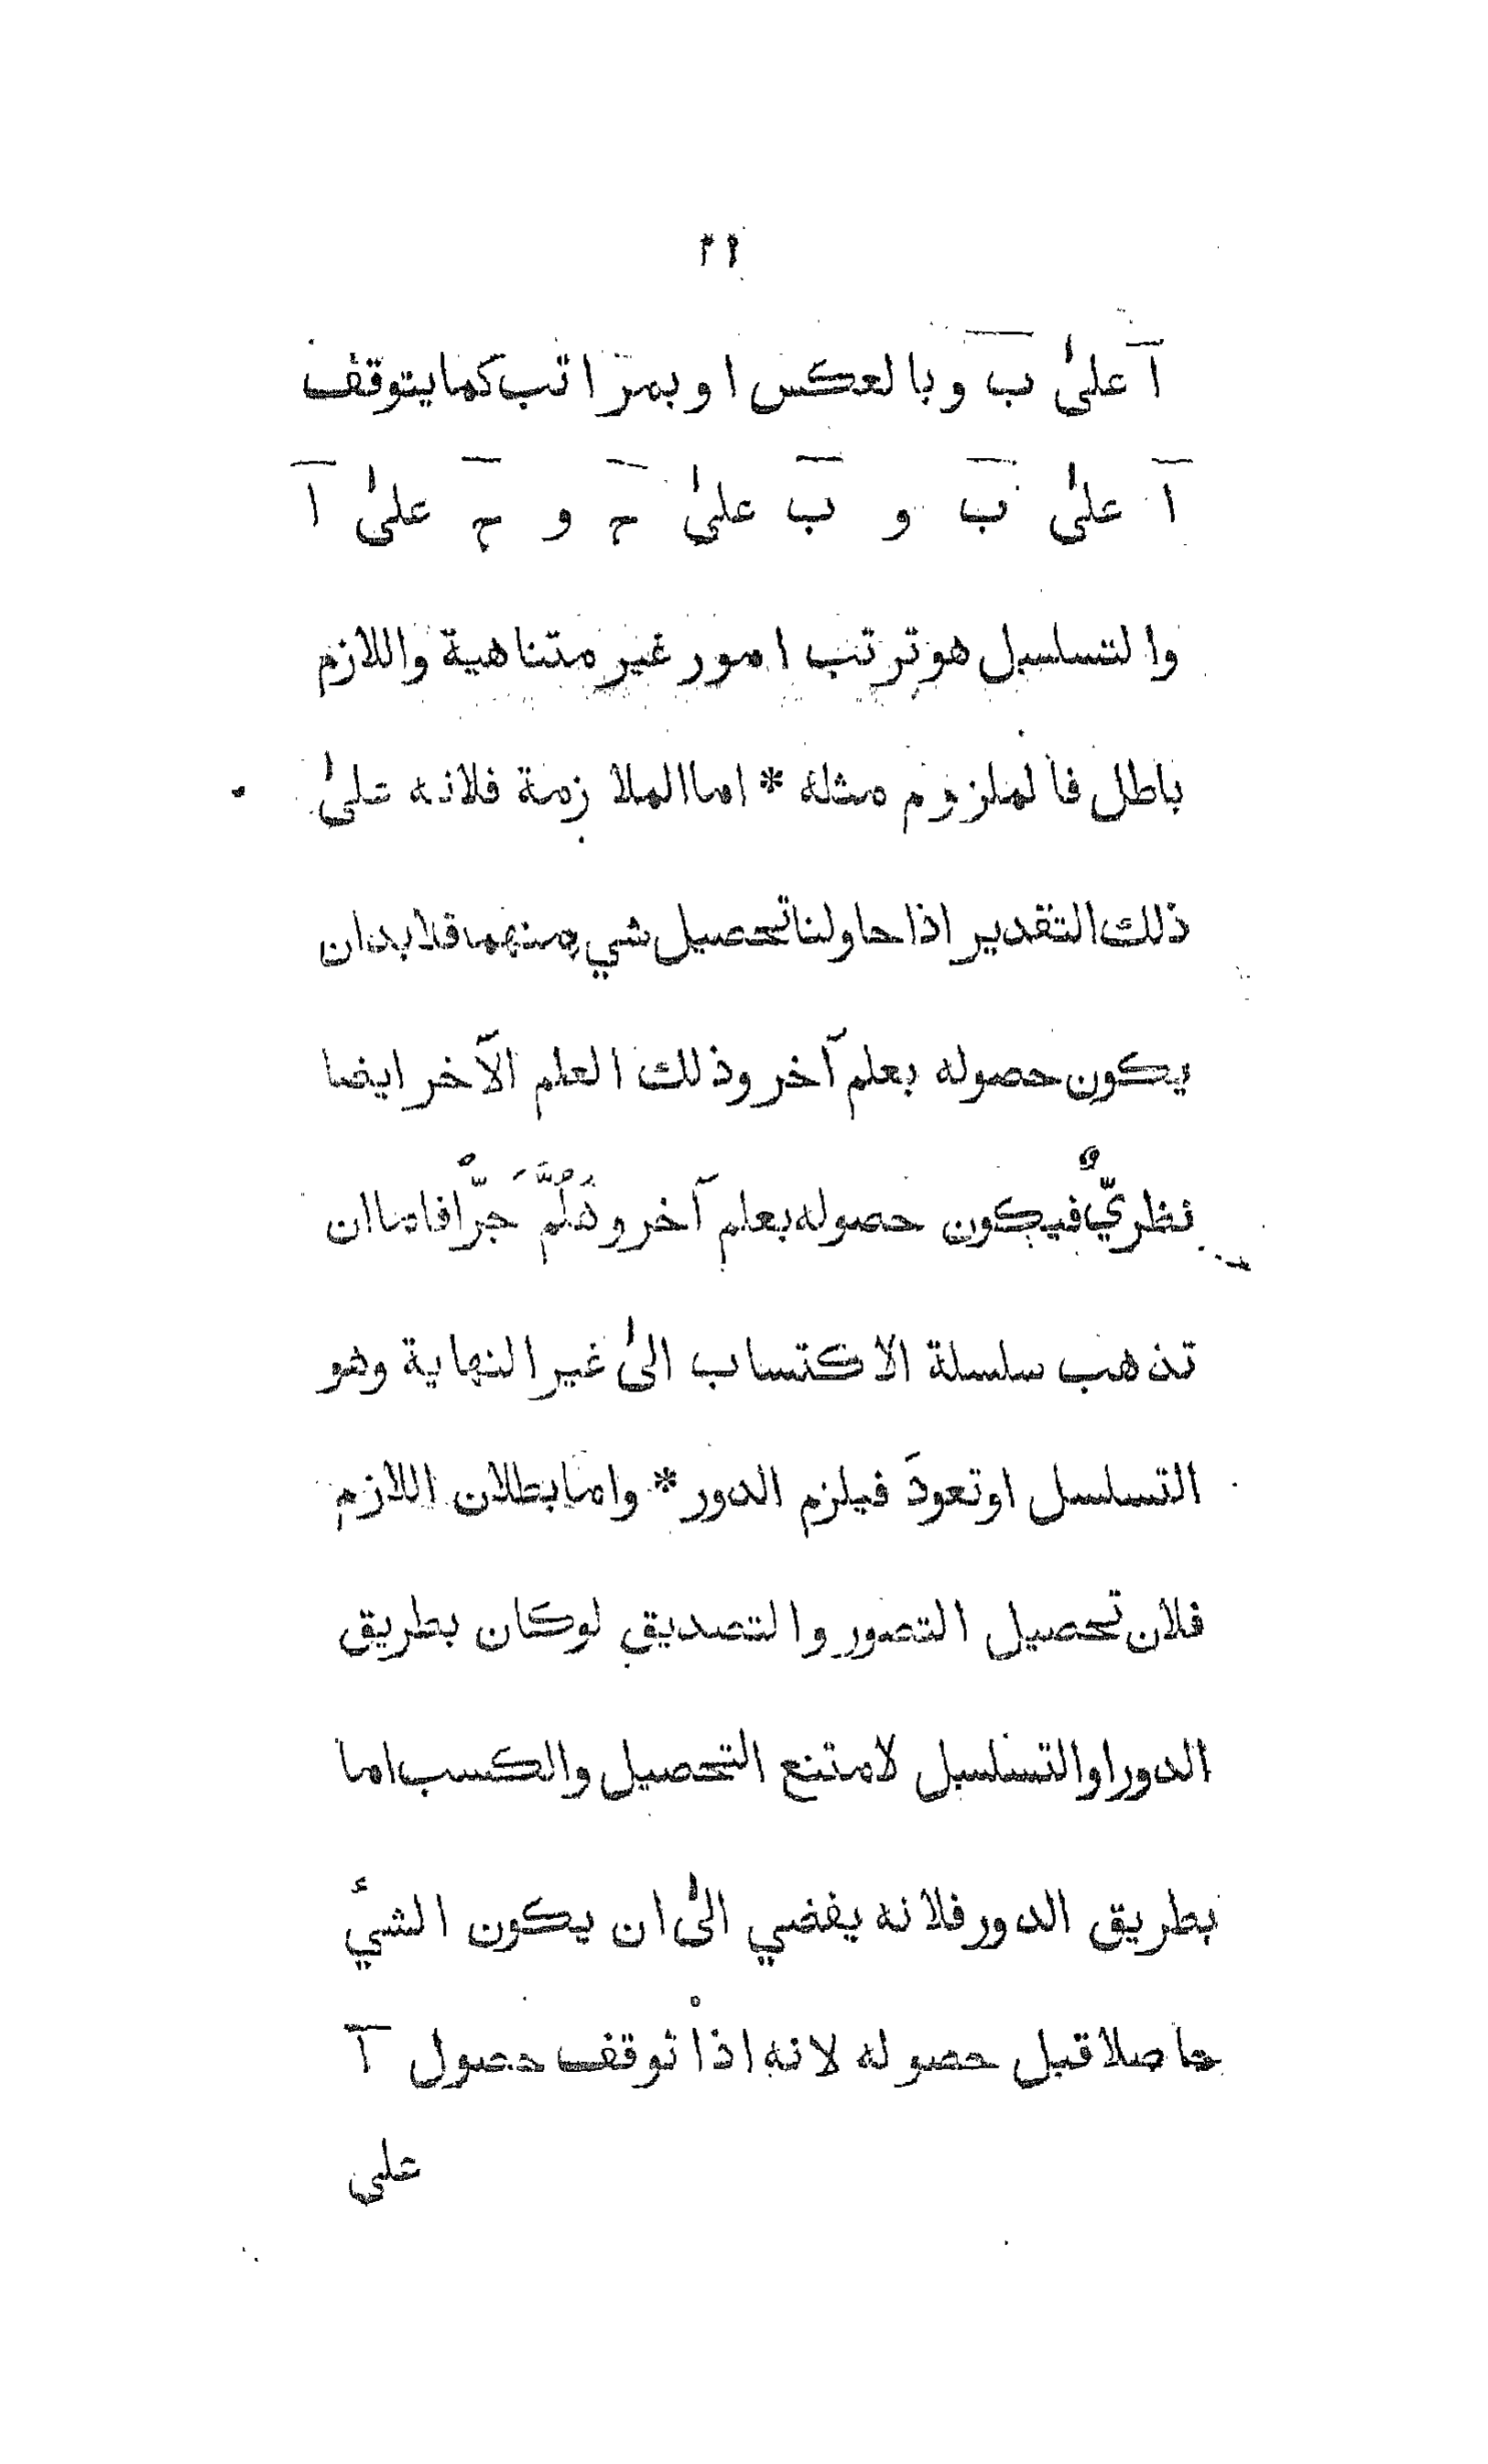 ٢٢
آ علىٰ ب وبالعكس اوبمراتب كمايتوقف
آ علىٰ ب و ب علىٰ ح و ح علىٰ آ
والتسلسل هوترتب امور غير متناهية واللازم
باطل فالملزوم مثله * اماالملازمة فلانه علىٰ
ذلك التقدير اذا حاولنا تحصيل شي منهما فلابدان
يكون حصوله بعلم آخر وذلك العلم الآخر ايضا
نظريٌّ فيكون حصوله بعلم آخر وهَلُمَّ جرًّا فاماان
تذهب سلسلة الاكتساب الىٰ غير النهاية وهو
التسلسل اوتعودَ فيلزم الدور * وامابطلان اللازم
فلان تحصيل التصور والتصديق لوكان بطريق
الدور اوالتسلسل لامتنع التحصيل والكسب اما
بطريق الدور فلانه يفضي الىٰ ان يكون الشئ
حاصلا قبل حصوله لانه اذا توقف حصول آ
علي